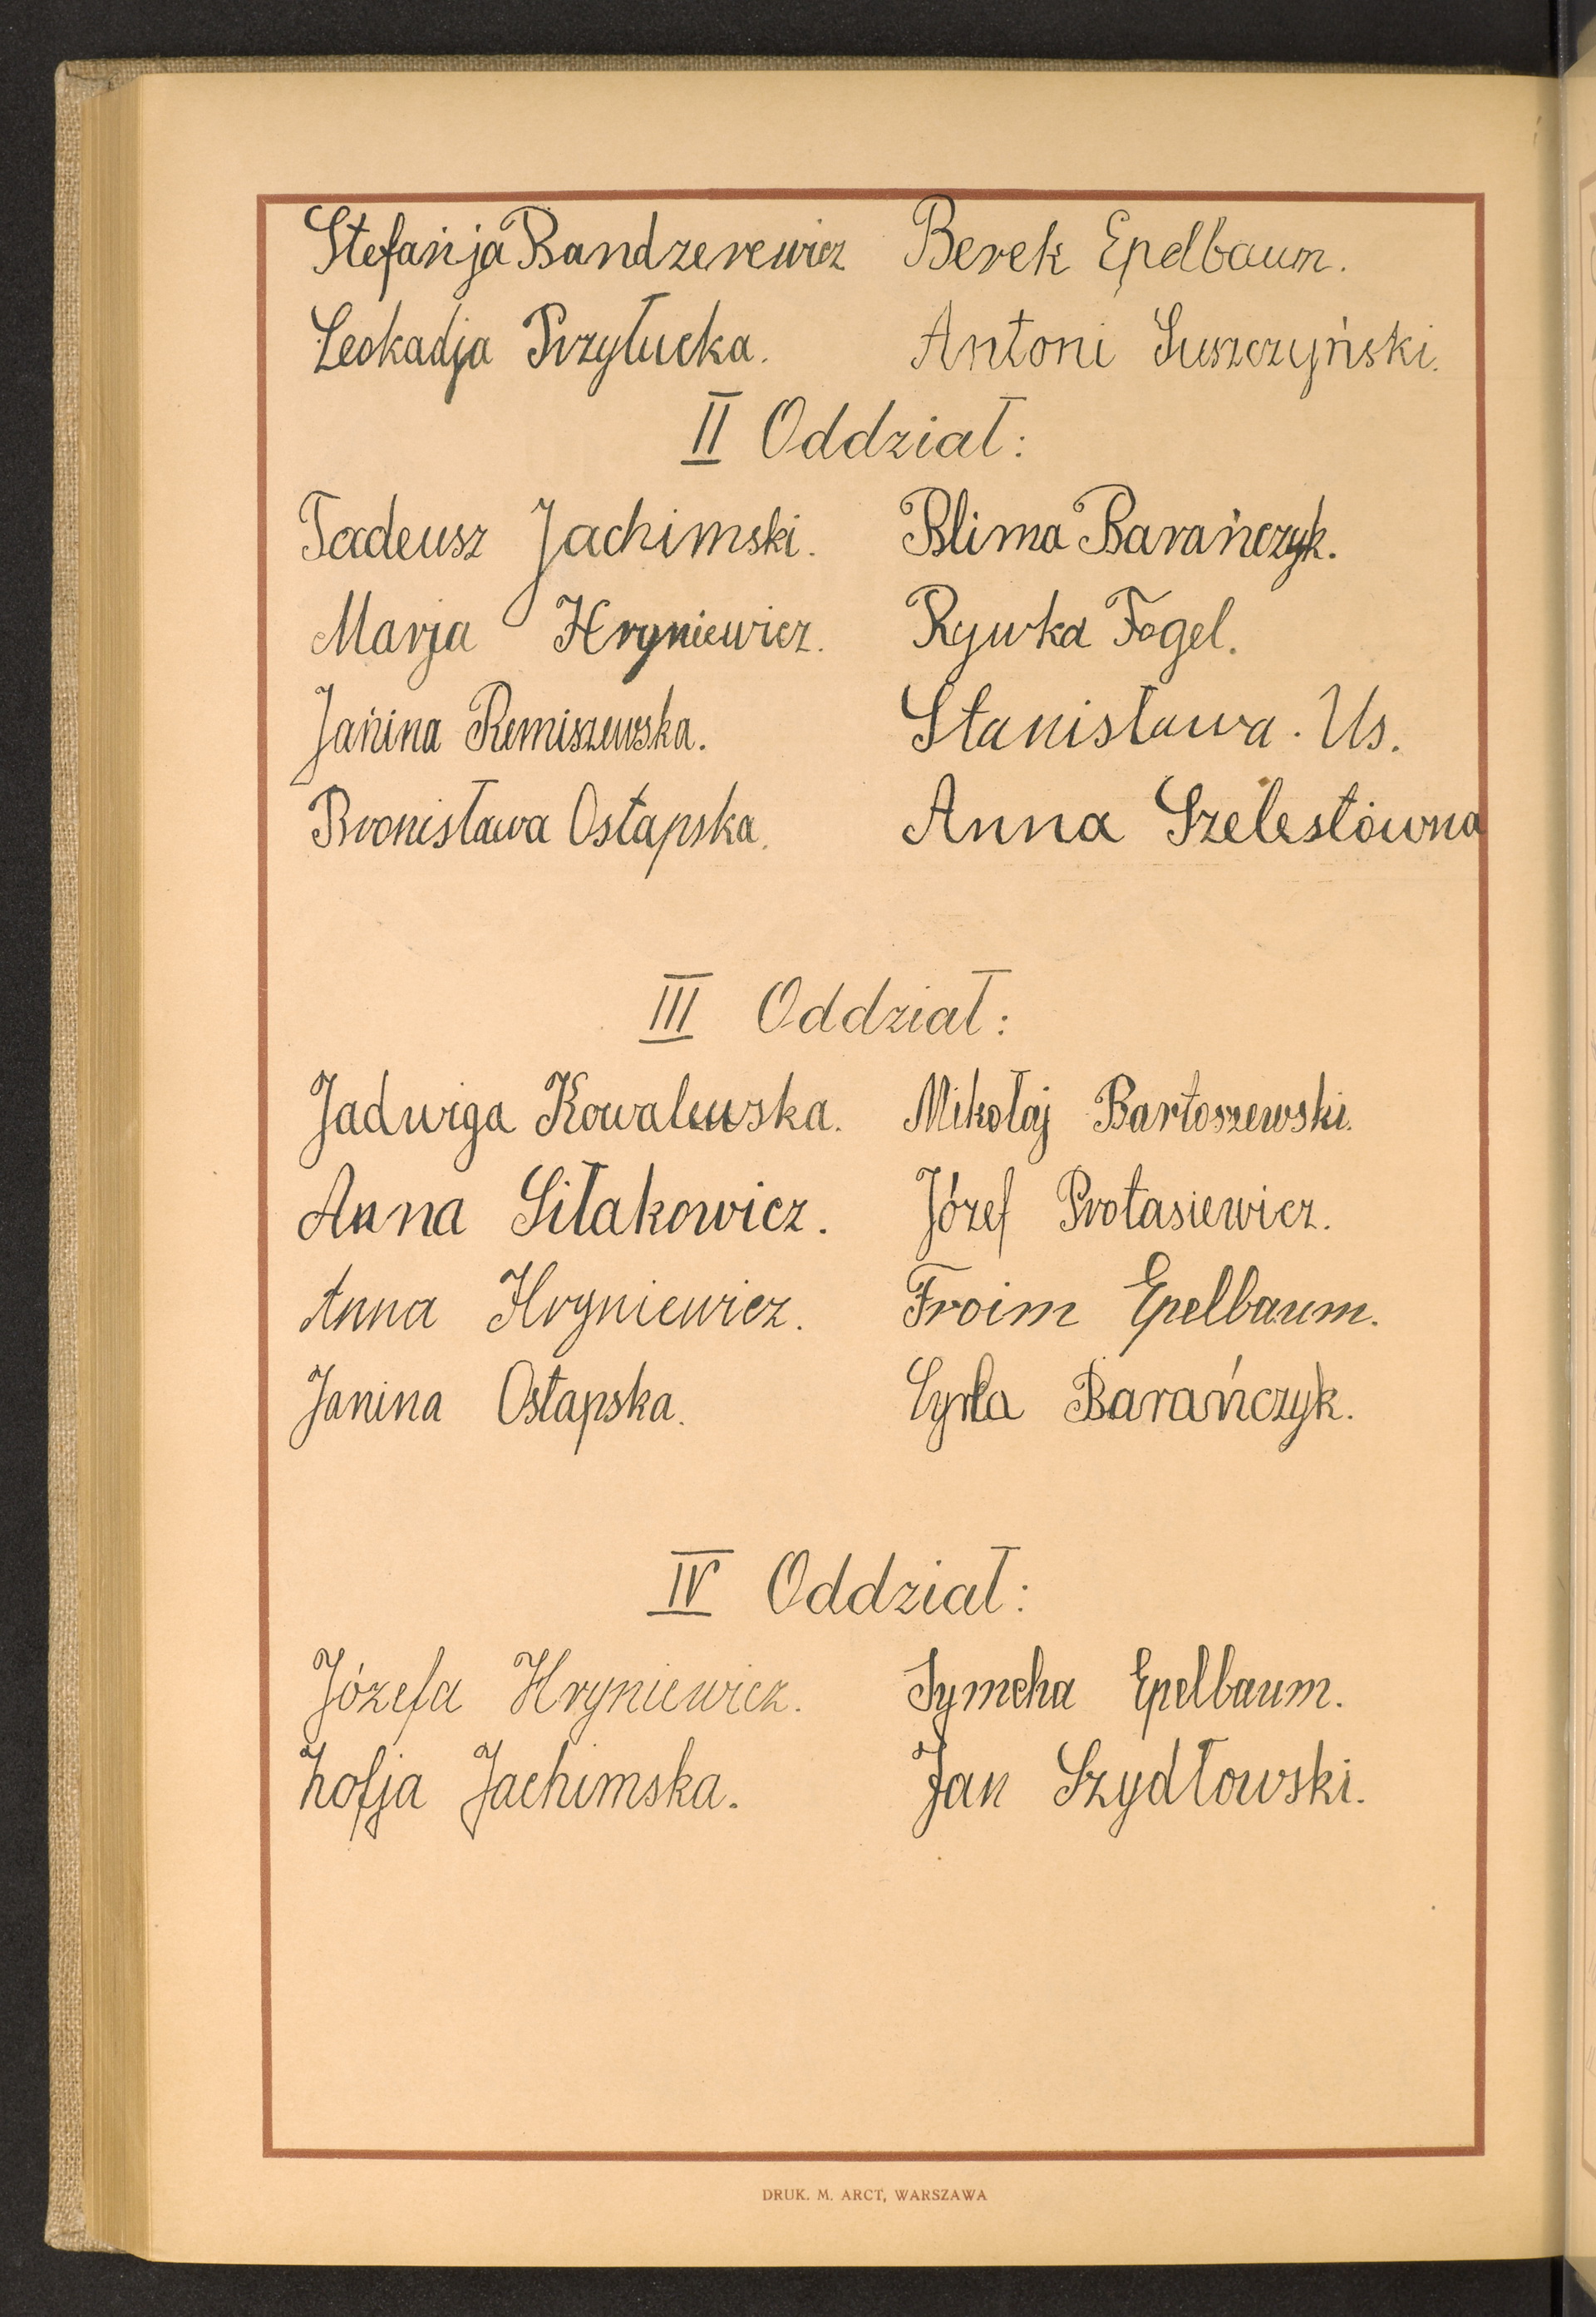 Stefanja Bandzerewicz Berek Epelbaum.
Leokadja Przyłucka. Antoni Suszczyński.
II Oddział:
Tadeusz Jachimski. Blima Barańczyk.
Marja Hryniewicz. Rywka Fogel.
Janina Remiszewska. Stanisława. Us.
Bronisława Ostapska. Anna Szelestówna
III Oddział:
Jadwiga Kowalewska. Mikołaj Bartoszewski.
Anna Siłakowicz. Józef Protasiewicz.
Anna Hryniewicz. Froim Epelbaum.
Janina Ostapska. Cyrla Barańczyk.
IV Oddział:
Józefa Hryniewicz. Symcha Epelbaum.
Zofja Jachimska. Jan Szydłowski.
DRUK. M. ARCT, WARSZAWA